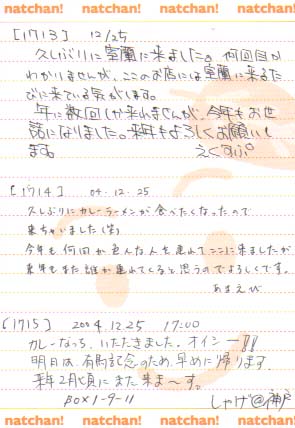 natchan! natchan! natchan! natchan!
[1713] 12/25
久しぶりに室蘭に来ました。何回目か
わかりませんが、ここのお店には室蘭に来るた
びに来ている気がします。
年に数回しか来れませんが、今年もお世
話になりました。来年もよろしくお願いし
ます。 えくすぷ
[1714] 04.12.25
久しぶりにカレーラーメンが食べたくなったので
来ちゃいました(笑)
今年も何回か色んな人を連れてここに来ましたが
来年もまた誰か連れてくると思うのでよろしくです。
あまえび
[1715] 2004.12.25 17:00
カレーなっち、いただきました。オイシー!!
明日は、有馬記念のため、早めに帰ります。
来年2月頃にまた来ま〜す。
BOX1-9-11 しゃけ@神戸
natchan! natchan! natchan! natchan!